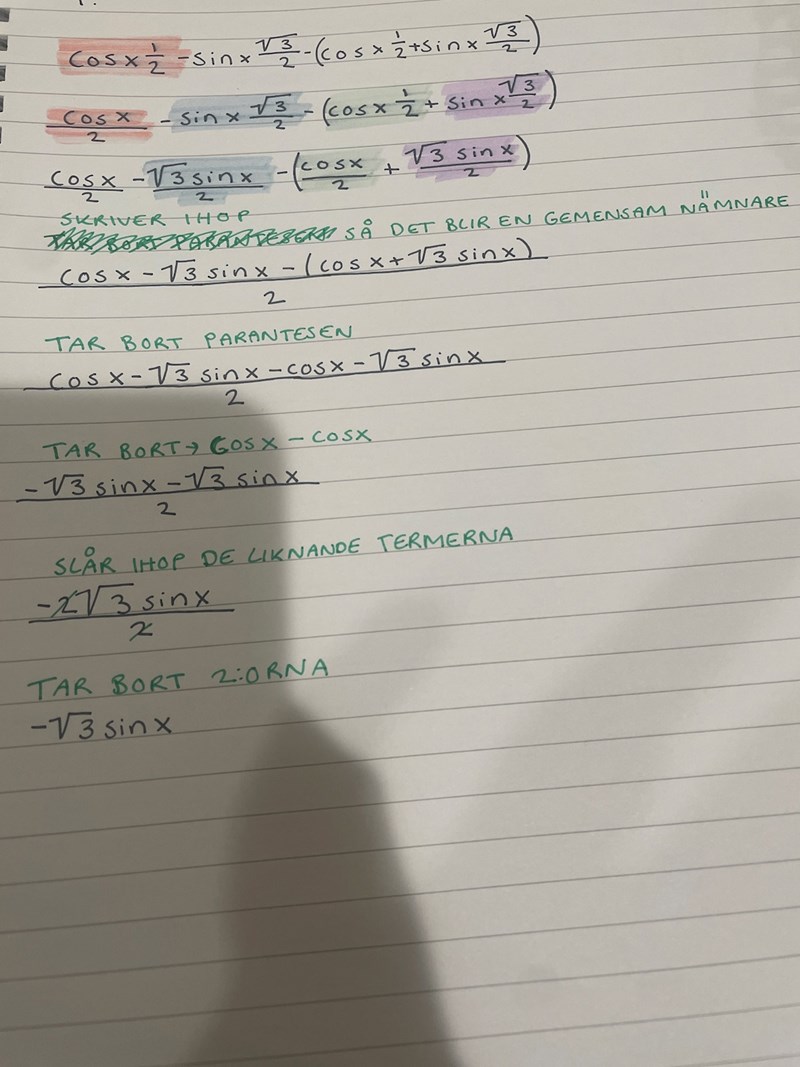 cos x 1/2 - sin x √3/2 - (cos x 1/2 + sin x √3/2)
cos x/2 - sin x √3/2 - (cos x 1/2 + sin x √3/2)
cos x/2 - √3 sin x/2 - (cos x/2 + √3 sin x/2)
SKRIVER IHOP
SÅ DET BLIR EN GEMENSAM NÄMNARE
cos x - √3 sin x - (cos x + √3 sin x)
2
TAR BORT PARANTESEN
cos x - √3 sin x - cos x - √3 sin x
2
TAR BORT → COS X - COSX
-√3 sin x - √3 sin x
2
SLÅR IHOP DE LIKNANDE TERMERNA
-2√3 sin x
2
TAR BORT 2:ORNA
-√3 sin x